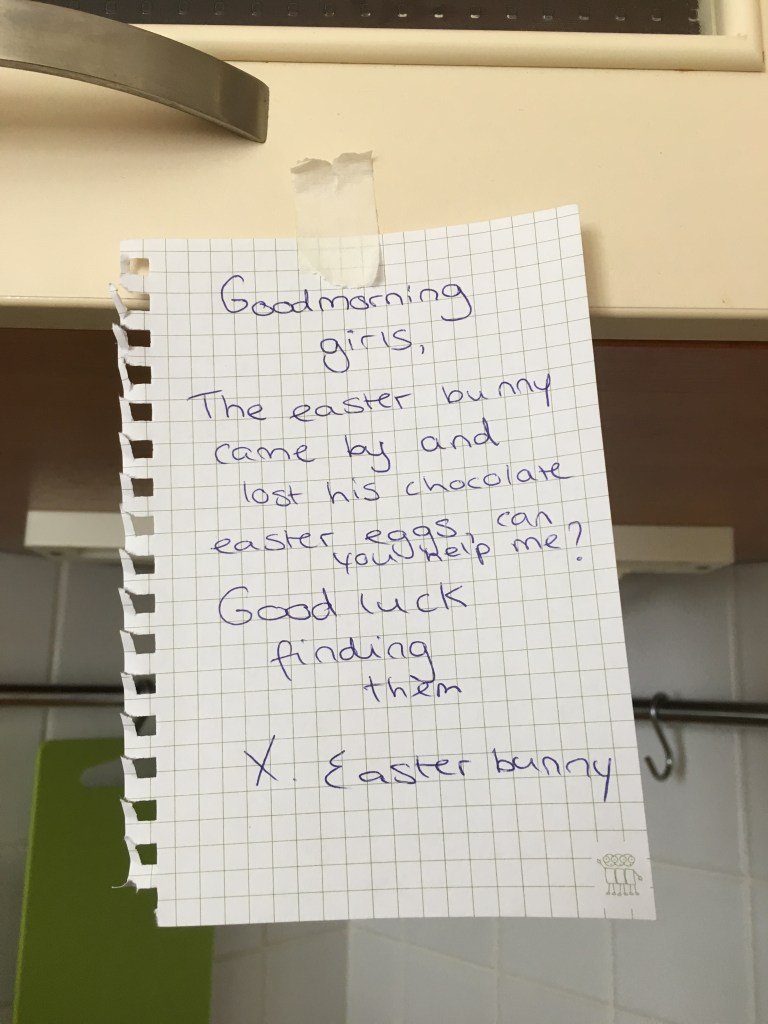 Goodmorning
girls,
The easter bunny
came by and
lost his chocolate
easter eggs, can
you help me?
Good luck
finding
them
X. Easter bunny